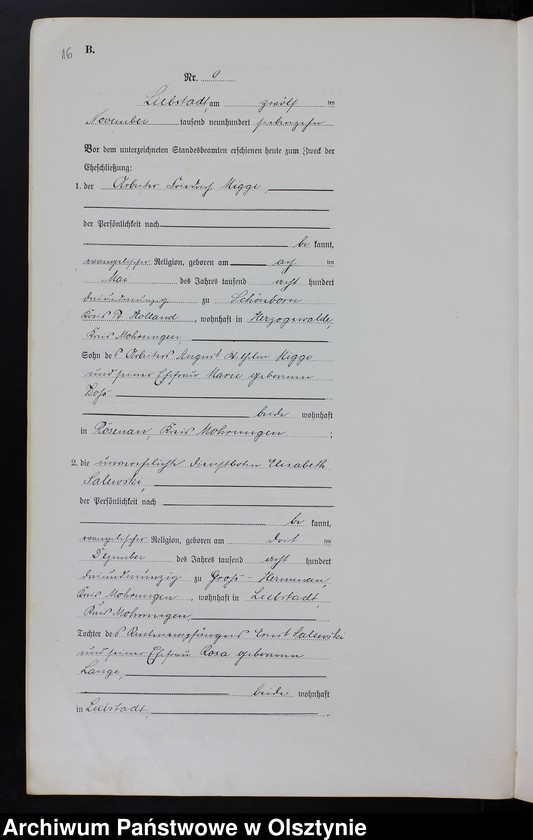 16 B.
Nr. 9
Liebstadt, am zwölf ten
November tausend neunhundert siebenzehn
Vor dem unterzeichneten Standesbeamten erschienen heute zum Zweck der
Eheschließung:
1. der Arbeiter Friedrich Migge,
der Persönlichkeit nach
be kannt,
evangelischer Religion, geboren am ach ten
Mai des Jahres tausend acht hundert
dreiundneunzig zu Schönborn
Kreis Pr Holland, wohnhaft in Herzogswalde,
Kreis Mohrungen,
Sohn des Arbeiters August Wilhelm Migge
und seiner Ehefrau Marie geborenen
beide wohnhaft
in Rosenau, Kreis Mohrungen ;
2. die unverehelichte Dienstboten Elisabeth
Salewski,
der Persönlichkeit nach
be kannt,
evangelischer Religion, geboren am drit ten
Dezember des Jahres tausend acht hundert
dreiundneunzig zu Groß-Hermenau,
Kreis Mohrungen, wohnhaft in Liebstadt,
Kreis Mohrungen,
Tochter des Rentenempfängers Ernst Salewski
und seiner Ehefrau Rosa geborenen
Lange,
beide wohnhaft
in Liebstadt, .
Archiwum Państwowe w Olsztynie